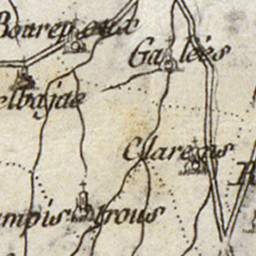 Bourepeaux
Galées
elbajac
Claregis
umpistrous